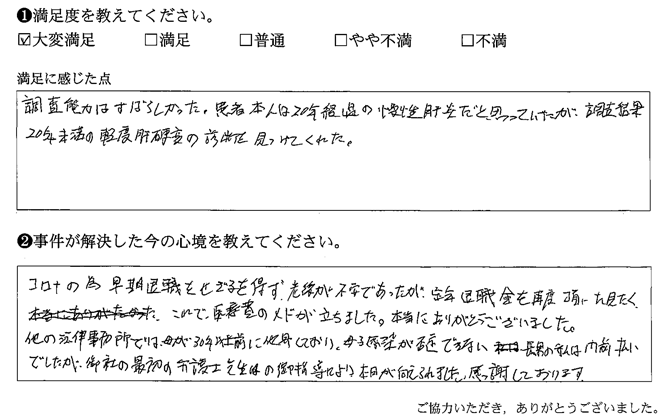 ❶満足度を教えてください。
☑大変満足 □満足 □普通 □やや不満 □不満
満足に感じた点
調査能力はすばらしかった。患者本人は20年経過の慢性肝炎だと思っていたが、調査結果
20年未満の軽度肝硬変の診断を見つけてくれた。
❷事件が解決した今の心境を教えてください。
コロナの為早期退職をせざるを得ず、老後が不安であったが、定年退職金を再度頂いた
本当にありがたかった。これで、医療費のメドが立ちました。本当にありがとうございました。
他の法律事務所では、母が30年以上前に他界しており、母子感染が証明できない 長男の私は内前払い
でしたが、御社の最初の弁護士先生の御指導により本日が迎えられました。感謝しております。
ご協力いただき、ありがとうございました。